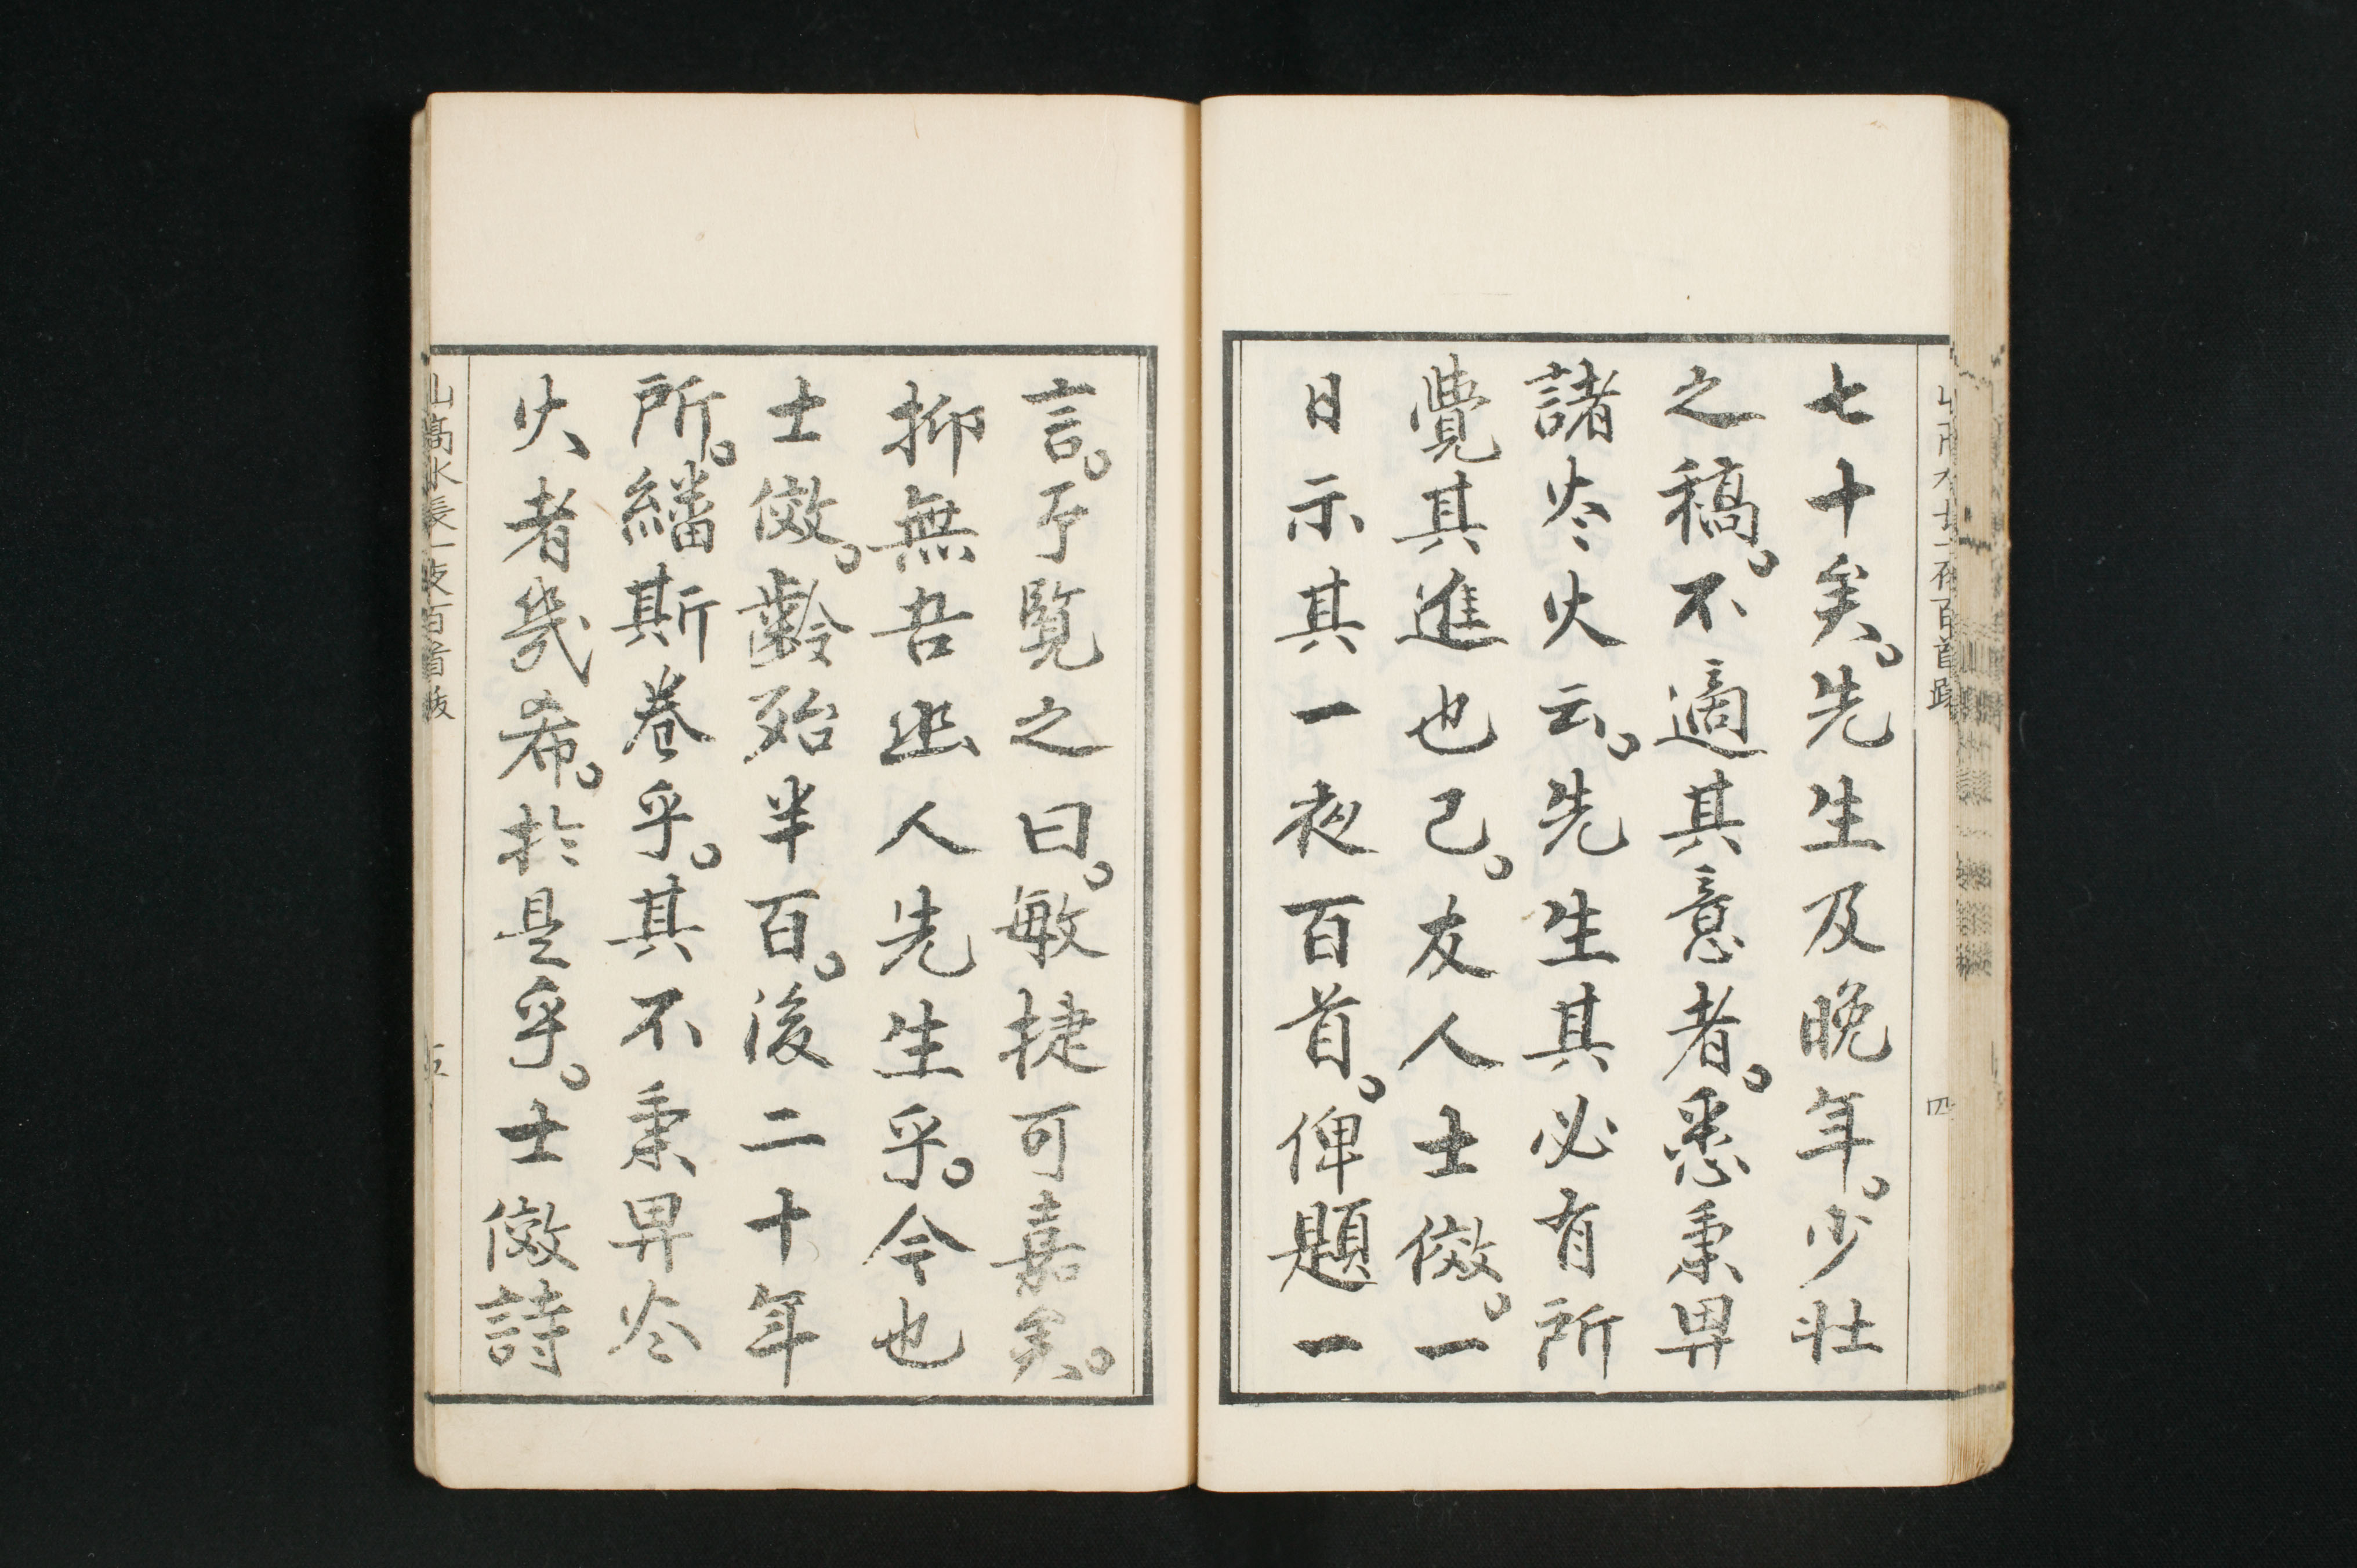 七十矣。先生及晚年。少壯
之稿。不適其意者。悉秉畀
諸炎火云。先生其必有所
覺其進也已。友人士儆。一
日示其一夜百首。俾題一
言。予覧之曰。敏捷可嘉矣。
抑無吾幽人先生乎。今也
士儆。齡殆半百。後二十年
所。繙斯卷乎。其不秉畀炎
火者幾希。於是乎。士儆詩
山高水長一夜百首跋